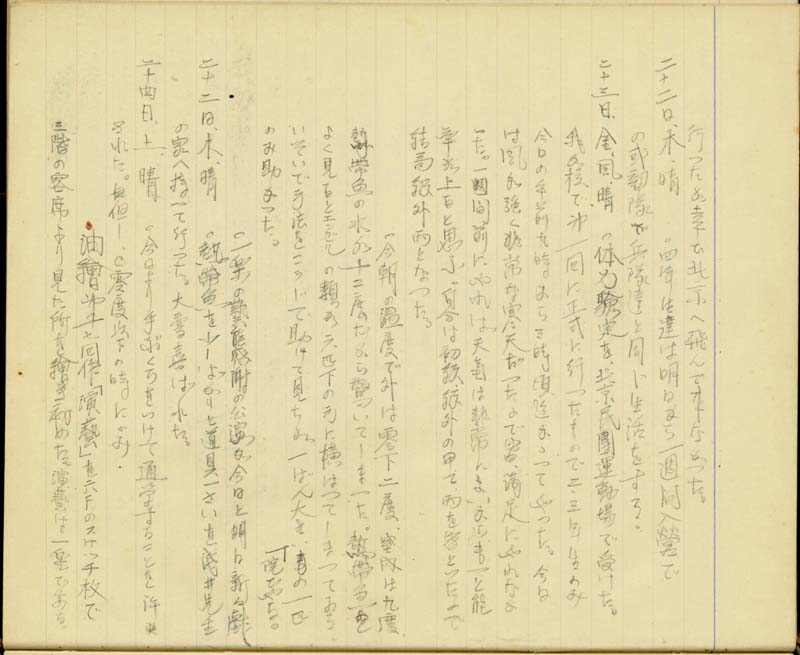 行ったが幸ひ北京へ飛んで来なかった。
二十二日、木、晴 〇四年生達は明日から一週間入營で
の部隊で兵隊達と同じ生活をする。
二十三日、金、風、晴 〇体力驗定を、北京民團運動場で受けた。
我校で第一回に正式に行ったもので二、三年生のみ
今日の午前九時から三時頃迄かゝってやった。今日
は風が強く非常な寒天だったので皆、満足にやれなか
った。一週間前にやれば天氣は非常によかったもっと能
率が上ると思ふ。自分は初級級外の甲で丙を皆とったので
結局級外丙となった。
〇今朝の温度で外は零下二度、室内は九度
熱帶魚の水が十二度のだから驚いてしまった。熱帶魚を
よく見るとエンゼルの類が六匹下の方に横はってしまってゐる。
いそいで方法をこうじて助けて見たが一ばん大きい青の一匹
のみ助かった。
〇一楽の藝能 の公演が今日と明日新々戲
院である。
二十二日、木、晴 〇熱帶魚を少しばかりと道具一さいを浅井先生
の家へ持って行った。大변喜ばれた。
二十四日、土、晴 〇今日より手ぶくろをつけて通学することを許
された。但し、零度以下の時にのみ.
油繪第十六回作「演藝」を六下のスケッチ板で
三階の客席より見た所を繪き初めた。演藝は一楽である。